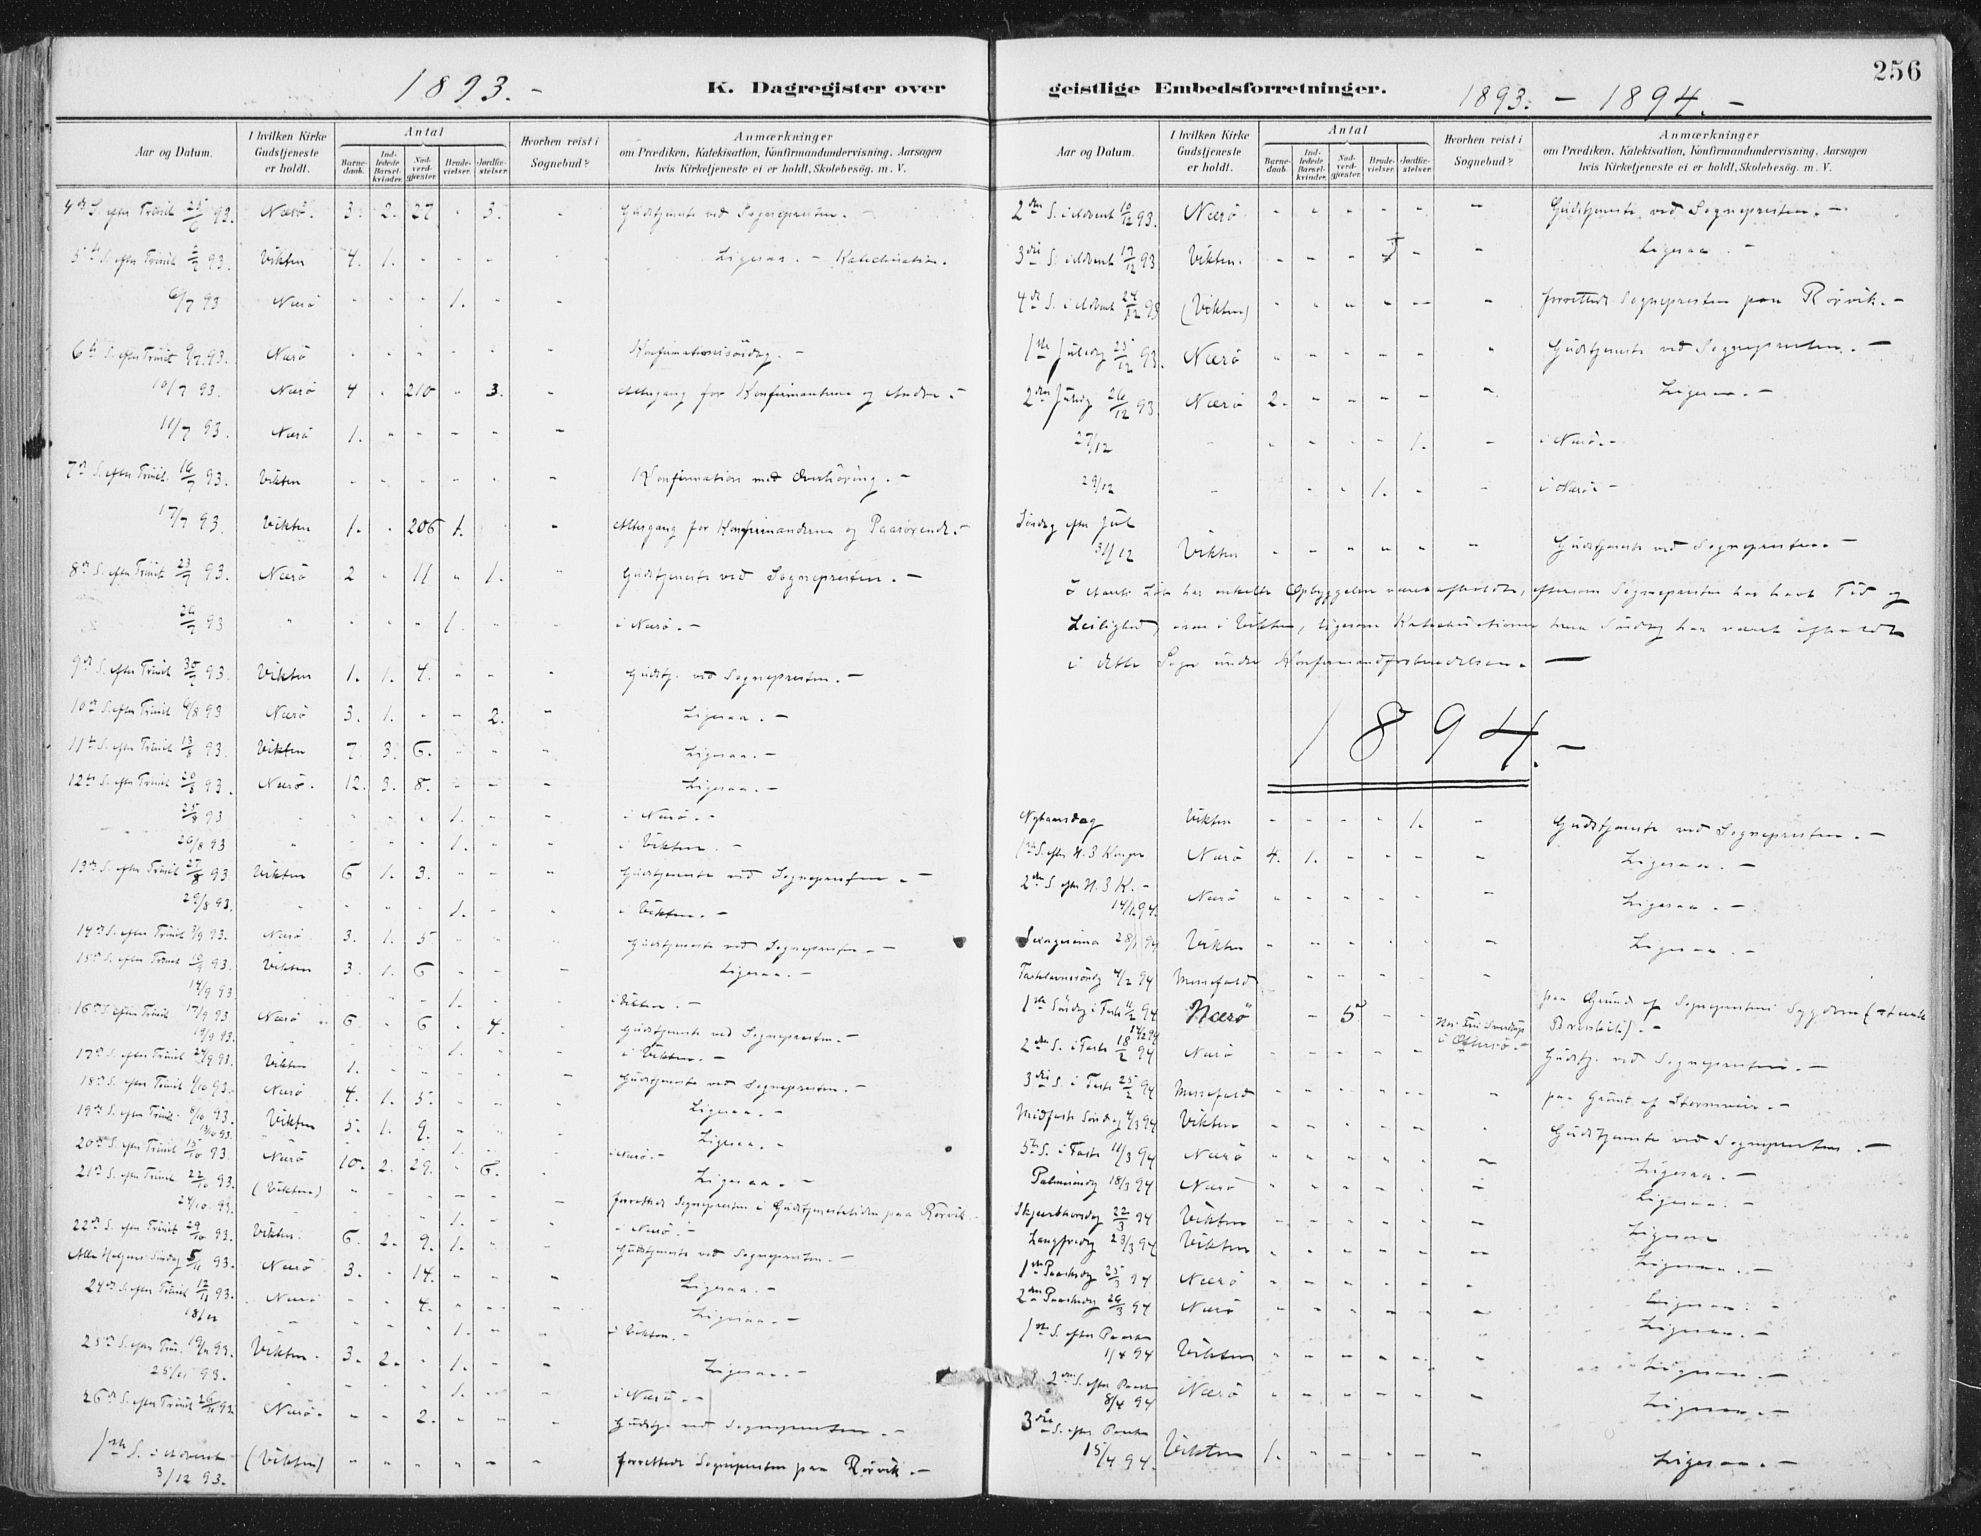 1893. -
K. Dagregister over
Aar og Datum.
I hvilken Kirke Gudstjeneste er holdt.
Antal
Barnedaab. Indledede Barselkvinder. Nadverdgjæster. Brudevielser. Jordfæstelser.
Hvorhen reist i Sognebud?
Anmærkninger
om Prædiken, Katekisation, Konfirmandundervisning. Aarsagen hvis Kirketjeneste ei er holdt, Skolebesøg. m. V.
4de S. efter Trinit 25/6 93. Nærö. 3. 2. 27 - 3. - Gudstjeneste ved Sognepresten. -
5te S. efter Trinit 2/7 93. Vikten 4. 1. - - - - Ligesaa. - Katechisation.
6/7 93 Nærö - - - 1. - -
6te S. efter Trinit 9/7 93. Nærö - - - - - - Konfirmationssöndag. -
10/7 93. Nærö 4 - 210 - 3. - Altergang for Konfirmanterne og Andre. -
11/7 93. Nærö 1. - - - - -
7de S. efter Trinit. 16/7 93. Vikten - - - - - - Konfirmation med Overhöring. -
17/7 93. Vikten 1. - 206 1. - Altergang for Konfirmanderne og Paarörende. -
8de S. efter Trinit 23/7 93. Nærö 2 - 11 - 1. - Gudstjeneste ved Sognepresten. -
26/7 93 " - - - 1. - - i Nærö. -
9de S. efter Trinit 30/7 93. Vikten 1. 1. 4. - - - Gudstj. ved Sognepresten. -
10de S. efter Trinit 6/8 93 Nærö 3. 1. - - 2. - Ligesaa. -
11te S. efter Trinit 13/8 93. Vikten 7. 3. 6. - - - Ligesaa. -
12te S. efter Trinit 20/8 93. Nærö. 12. 3. 8. - - - Ligesaa. -
25/8 93 - - - - 1. - - i Nærö. -
26/8 93 " - - - 1. - - i Vikten. -
13de S. efter Trinit 27/8 93 Vikten 6 1. 3. - - - Gudstjeneste ved Sognepresten. -
29/8 93. - - - - 1. - - i Vikten. -
14de S. efter Trinit 3/9 93. Nærö 3. 1. 5 - - - Gudstjeneste ved Sognepresten. -
15de S. efter Trinit 10/9 93. Vikten 3. 1. 6 - - - Ligesaa. -
14/9 93. - - - 1. - - i Vikten. -
16de S. efter Trinit 17/9 93 Nærö 6. - 6 - 4. - Gudstjeneste ved Sognepresten. -
19/9 93. - - - 1. - - i Vikten. -
17de S. efter Trinit 24/9 93. Vikten 1. - - - - - Gudstjeneste ved Sognepresten. -
18de S. efter Trinit 1/10 93. Nærö 4. 1. 5. - - - Ligesaa. -
19de S. efter Trinit. 8/10 93. Vikten 5. 1. 9. - - - Ligesaa. -
13/10 93. - - - 1. - - i Nærö. -
20de S. efter Trinit 15/10 93 Nærö 10. 2. 29. - 6. - Ligesaa. -
21de S. efter Trinit 22/10 93. (Vikten) - - - - - - forrettede Sognepresten i Gudstjenestetiden paa Rörvik. -
24/10 93. - - - 1. - - i Nærö. -
22de S. efter Trinit 29/10 93. Vikten. 6. 2. 9. 1. - - Gudstjeneste ved Sognepresten. -
Alle Helgens Söndag 5/11 93. Nærö 3. - 14. - - - Ligesaa. -
24de S. efter Trinit 12/11 93. Nærö - - 4. - - - Ligesaa. -
18/11 " - - - 1. - - i Vikten. -
25de S. efter Trin. 19/11 93. Vikten. 3. 2. - 1. - - Ligesaa. -
25/11 93. - - - 1. - - i Nærö. -
26de S. efter Trinit 26/11 93. Nærö. - - 2. - - - Gudstj. ved Sognepresten. -
1ste S. i Advent 3/12 93. (Vikten) - - - - - - forrettede Sognepresten paa Rörvik. -
geistlige Embedsforretninger.
1893. - 1894. -
256
Aar og Datum.
I hvilken Kirke Gudstjeneste er holdt.
Antal
Barnedaab. Indledede Barselkvinder. Nadverdgjæster. Brudevielser. Jordfæstelser.
Hvorhen reist i Sognebud?
Anmærkninger
om Prædiken, Katekisation, Konfirmandundervisning. Aarsagen hvis Kirketjeneste ei er holdt, Skolebesøg. m. V.
2den S. i Advent 10/12 93. Nærö - - - - - - Gudstjeneste ved Sognepresten. -
3die S. i Advent 17/12 93 Vikten. - - - - - Ligesaa -
4de S. i Advent 24/12 93 (Vikten) - - - - - - forrettede Sognepresten paa Rörvik. -
1ste Juledag 25/12 93. Nærö - - - - - - Gudstjeneste ved Sognepresten. -
2den Juledag 26/12 93. Nærö 2. - - - - - Ligesaa. -
27/12 - - - - - 1. - i Nærö. -
29/12 - - - - 1. - - i Nærö -
Söndag efter Jul
31/12 Vikten - - - - - - Gudstjeneste ved Sognepresten. -
I Aarets Löb har enkelte Opbyggelser været afholdte, eftersom Sognepresten har havt Tid og
Leilighed, i Vikten, ligesom Katechisationer hver Söndag har været afholdt
i dette Sogn under Konfirmandforberedelsen. -
1894. -
Nytaarsdag Vikten - - - - 1. - Gudstjeneste ved Sognepresten. -
1ste S. efter H. 3 Konger Nærö 4. 1. - - - - Ligesaa. -
2den S. efter H. 3 K. -
14/1 94. Nærö - Ligesaa. -
Sexagesima 28/1 94 Vikten - - - - - - Ligesaa. -
Fastelavnssöndag 4/2 94 Messefald - - - - - - paa Grund af Sognepresten's Sygdom
1ste Söndag i Faste 11/2 94 Nærö - - 5 - -
14/2 94 i Otersö. -
2den S. i Faste 18/2 94 Nærö - - - - - Gudstj. ved Sognepresten. -
3die S. i Faste 25/2 94 Messefald - - - - - - paa Grund af Stormveir. -
Midfaste Söndag 4/3 94 Vikten - - - - - - Gudstjeneste ved Sognepresten. -
5te S. i Faste 11/3 94 Nærö - - - - - - Ligesaa. -
Palmesöndag 18/3 94 Nærö - - - - - - Ligesaa. -
Skjærthorsdag 22/3 94 Vikten - - - - - - Ligesaa
Langfredag 23/3 94 Vikten - - - - - - Ligesaa. -
1ste Paaskedag 25/3 94 Nærö - - - - - - Ligesaa. -
2den Paaskedag 26/3 94 Nærö - - - - - - Ligesaa. -
1ste S. efter Paaske
1/4 94 Vikten - - - - - - Ligesaa. -
2den S. efter Paaske
8/4 94 Nærö - - - - - - Ligesaa. -
3die S. efter Paaske
15/4 94. Vikten 1. - - - - - Ligesaa. -